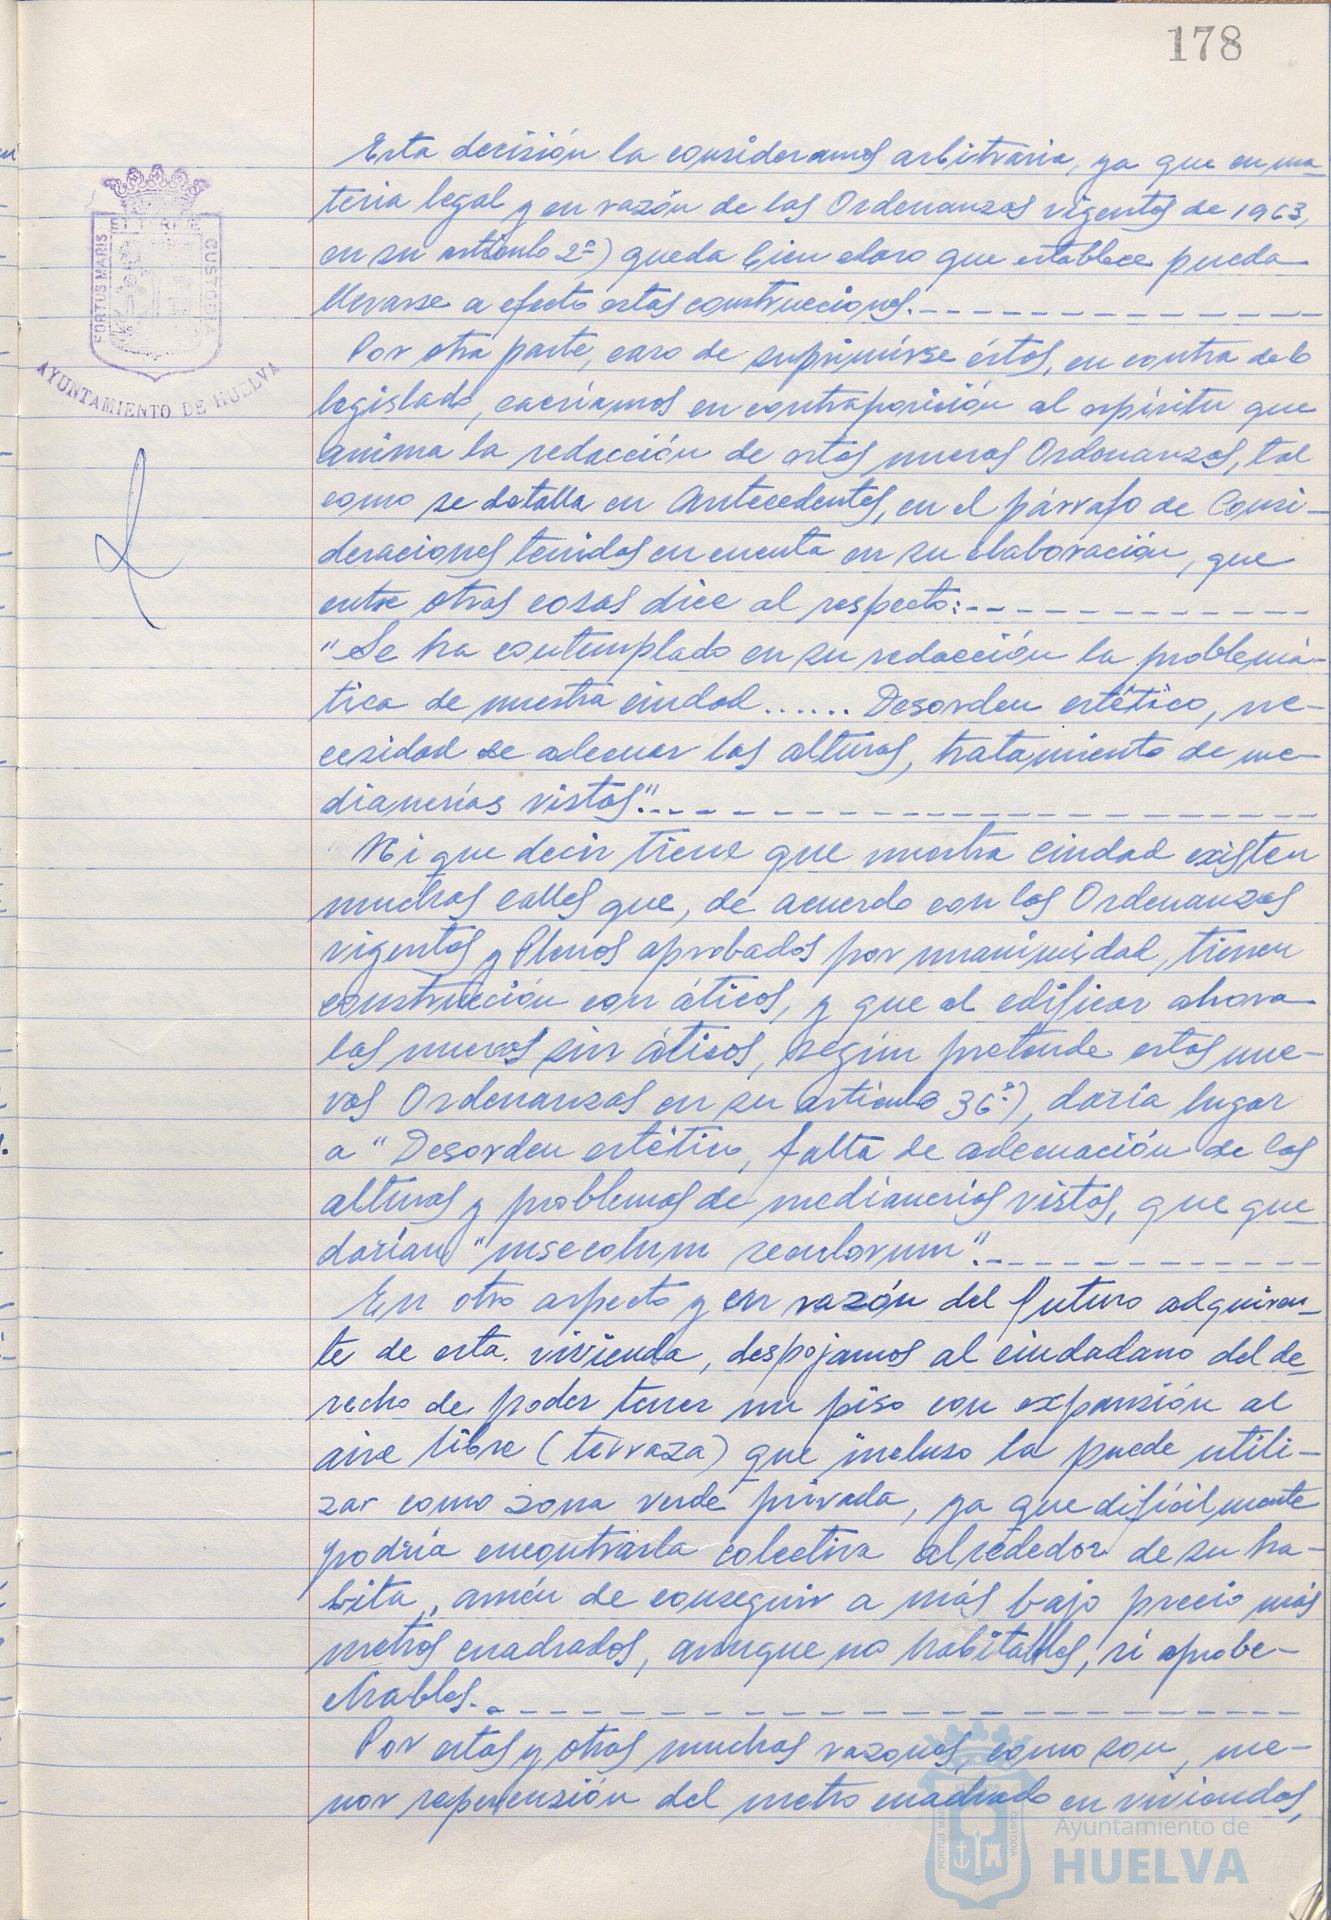 178
Esta decisión la consideramos arbitraria, ya que en ma-
teria legal y en razón de las Ordenanzas vigentes de 1963,
en su artículo 2º) queda bien claro que establece pueda
llevarse a efecto estas construcciones.
Por otra parte, caso de suprimirse éstos, en contra de lo
legislado, caeríamos en contraposición al espíritu que
anima la redacción de estas nuevas Ordenanzas, tal
como se detalla en Antecedentes, en el párrafo de Consi-
deraciones tenidas en cuenta en su elaboración, que
entre otras cosas dice al respecto:
"Se ha contemplado en su redacción la problemá-
tica de nuestra ciudad...... Desorden estético, ne-
cesidad de adecuar las alturas, tratamiento de me-
dianerías vistas".
Ni que decir tiene que nuestra ciudad existen
muchas calles que, de acuerdo con las Ordenanzas
vigentes y Plenos aprobados por unanimidad, tienen
construcción con áticos, y que al edificar ahora
las nuevas sin áticos, según pretende estas nue-
vas Ordenanzas en su artículo 36º), daría lugar
a "Desorden estético, falta de adecuación de las
alturas y problemas de medianerías vistas, que que-
darían "insecolum seculorum".
En otro aspecto y en razón del futuro adquiren-
te de esta vivienda, despojamos al ciudadano del de-
recho de poder tener un piso con expansión al
aire libre (terraza) que incluso la puede utili-
zar como zona verde privada, ya que difícilmente
podría encontrarla colectiva alrededor de su ha-
bita, amén de conseguir a más bajo precio más
metros cuadrados, aunque no habitables, si aprobe-
chables.
Por estas y otras muchas razones, como son, me-
nor repercusión del metro cuadrado en viviendas,
PORTUS MARIS
ET TERRAE
CUSTODIA
AYUNTAMIENTO DE HUELVA
Ayuntamiento de
HUELVA